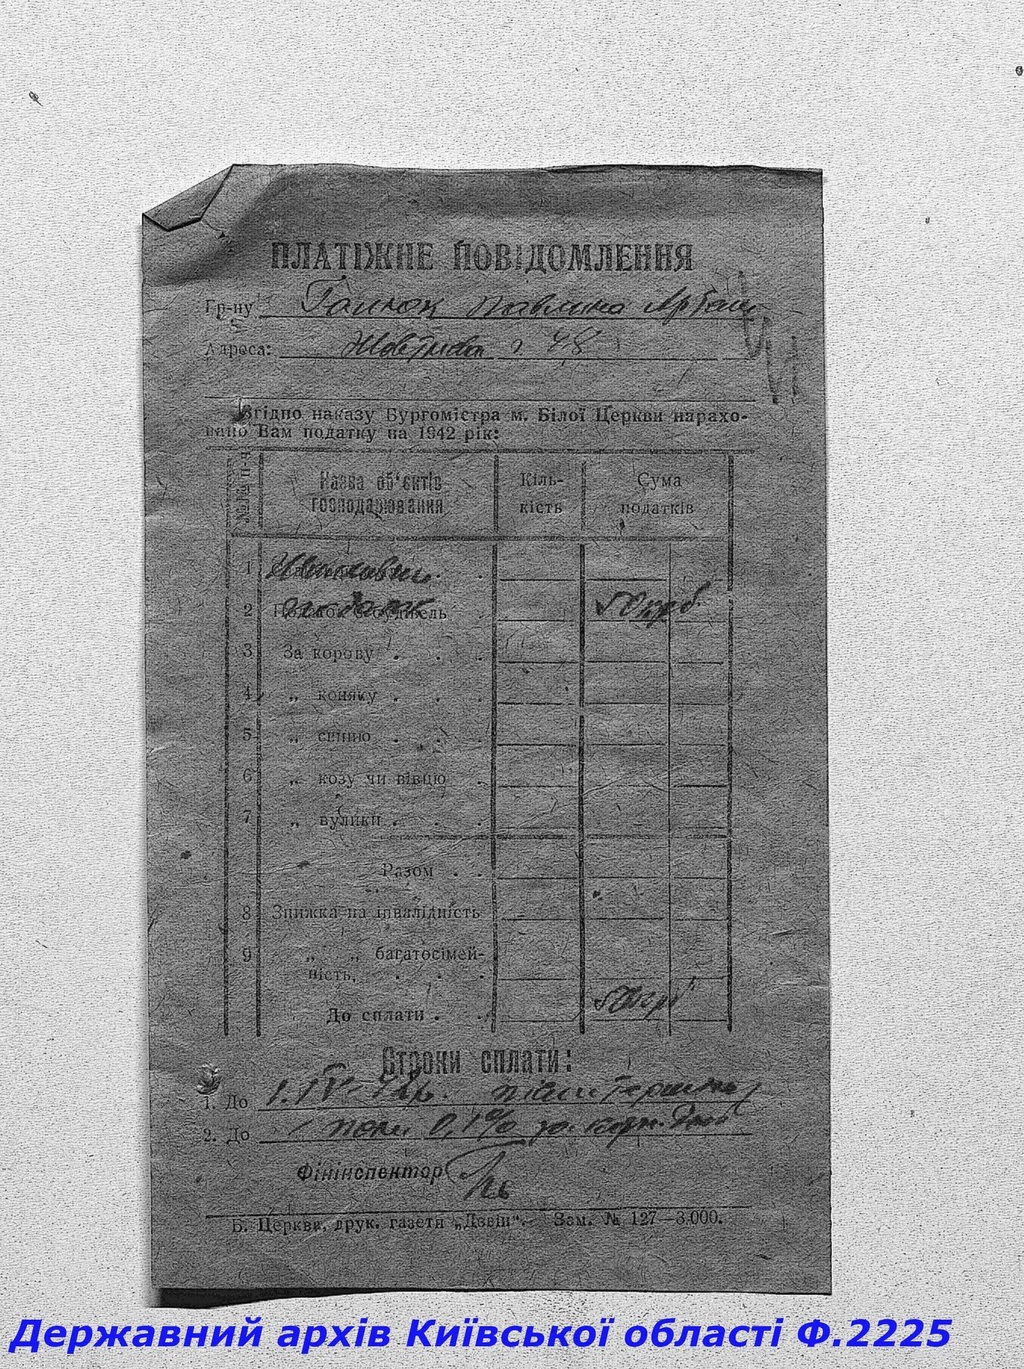 ПЛАТІЖНЕ ПОВІДОМЛЕННЯ
Гр-ну
Адреса: 48
Згідно наказу Бургомістра м. Білої Церкви нарахо-
вано Вам податку на 1942 рік:
№№ п-ч. Назва об'єктів господарювання Кіль-кість Сума податків
1
2 податок 50 крб.
3 За корову . . .
4 „ коняку . . .
5 „ свиню . . .
6 „ козу чи вівцю .
7 „ вулики . . .
Разом . .
8 Знижка на інвалідність
9 „ „ багатосімей-
ність. . . .
До сплати . . 50 крб
Строки сплати:
1. До 1.IV-42р.
2. До 0,1%
Фінінспектор
Б. Церкви, друк. газети „Дзвін".— Зам. № 127—3.000.
Державний архів Київської області Ф.2225